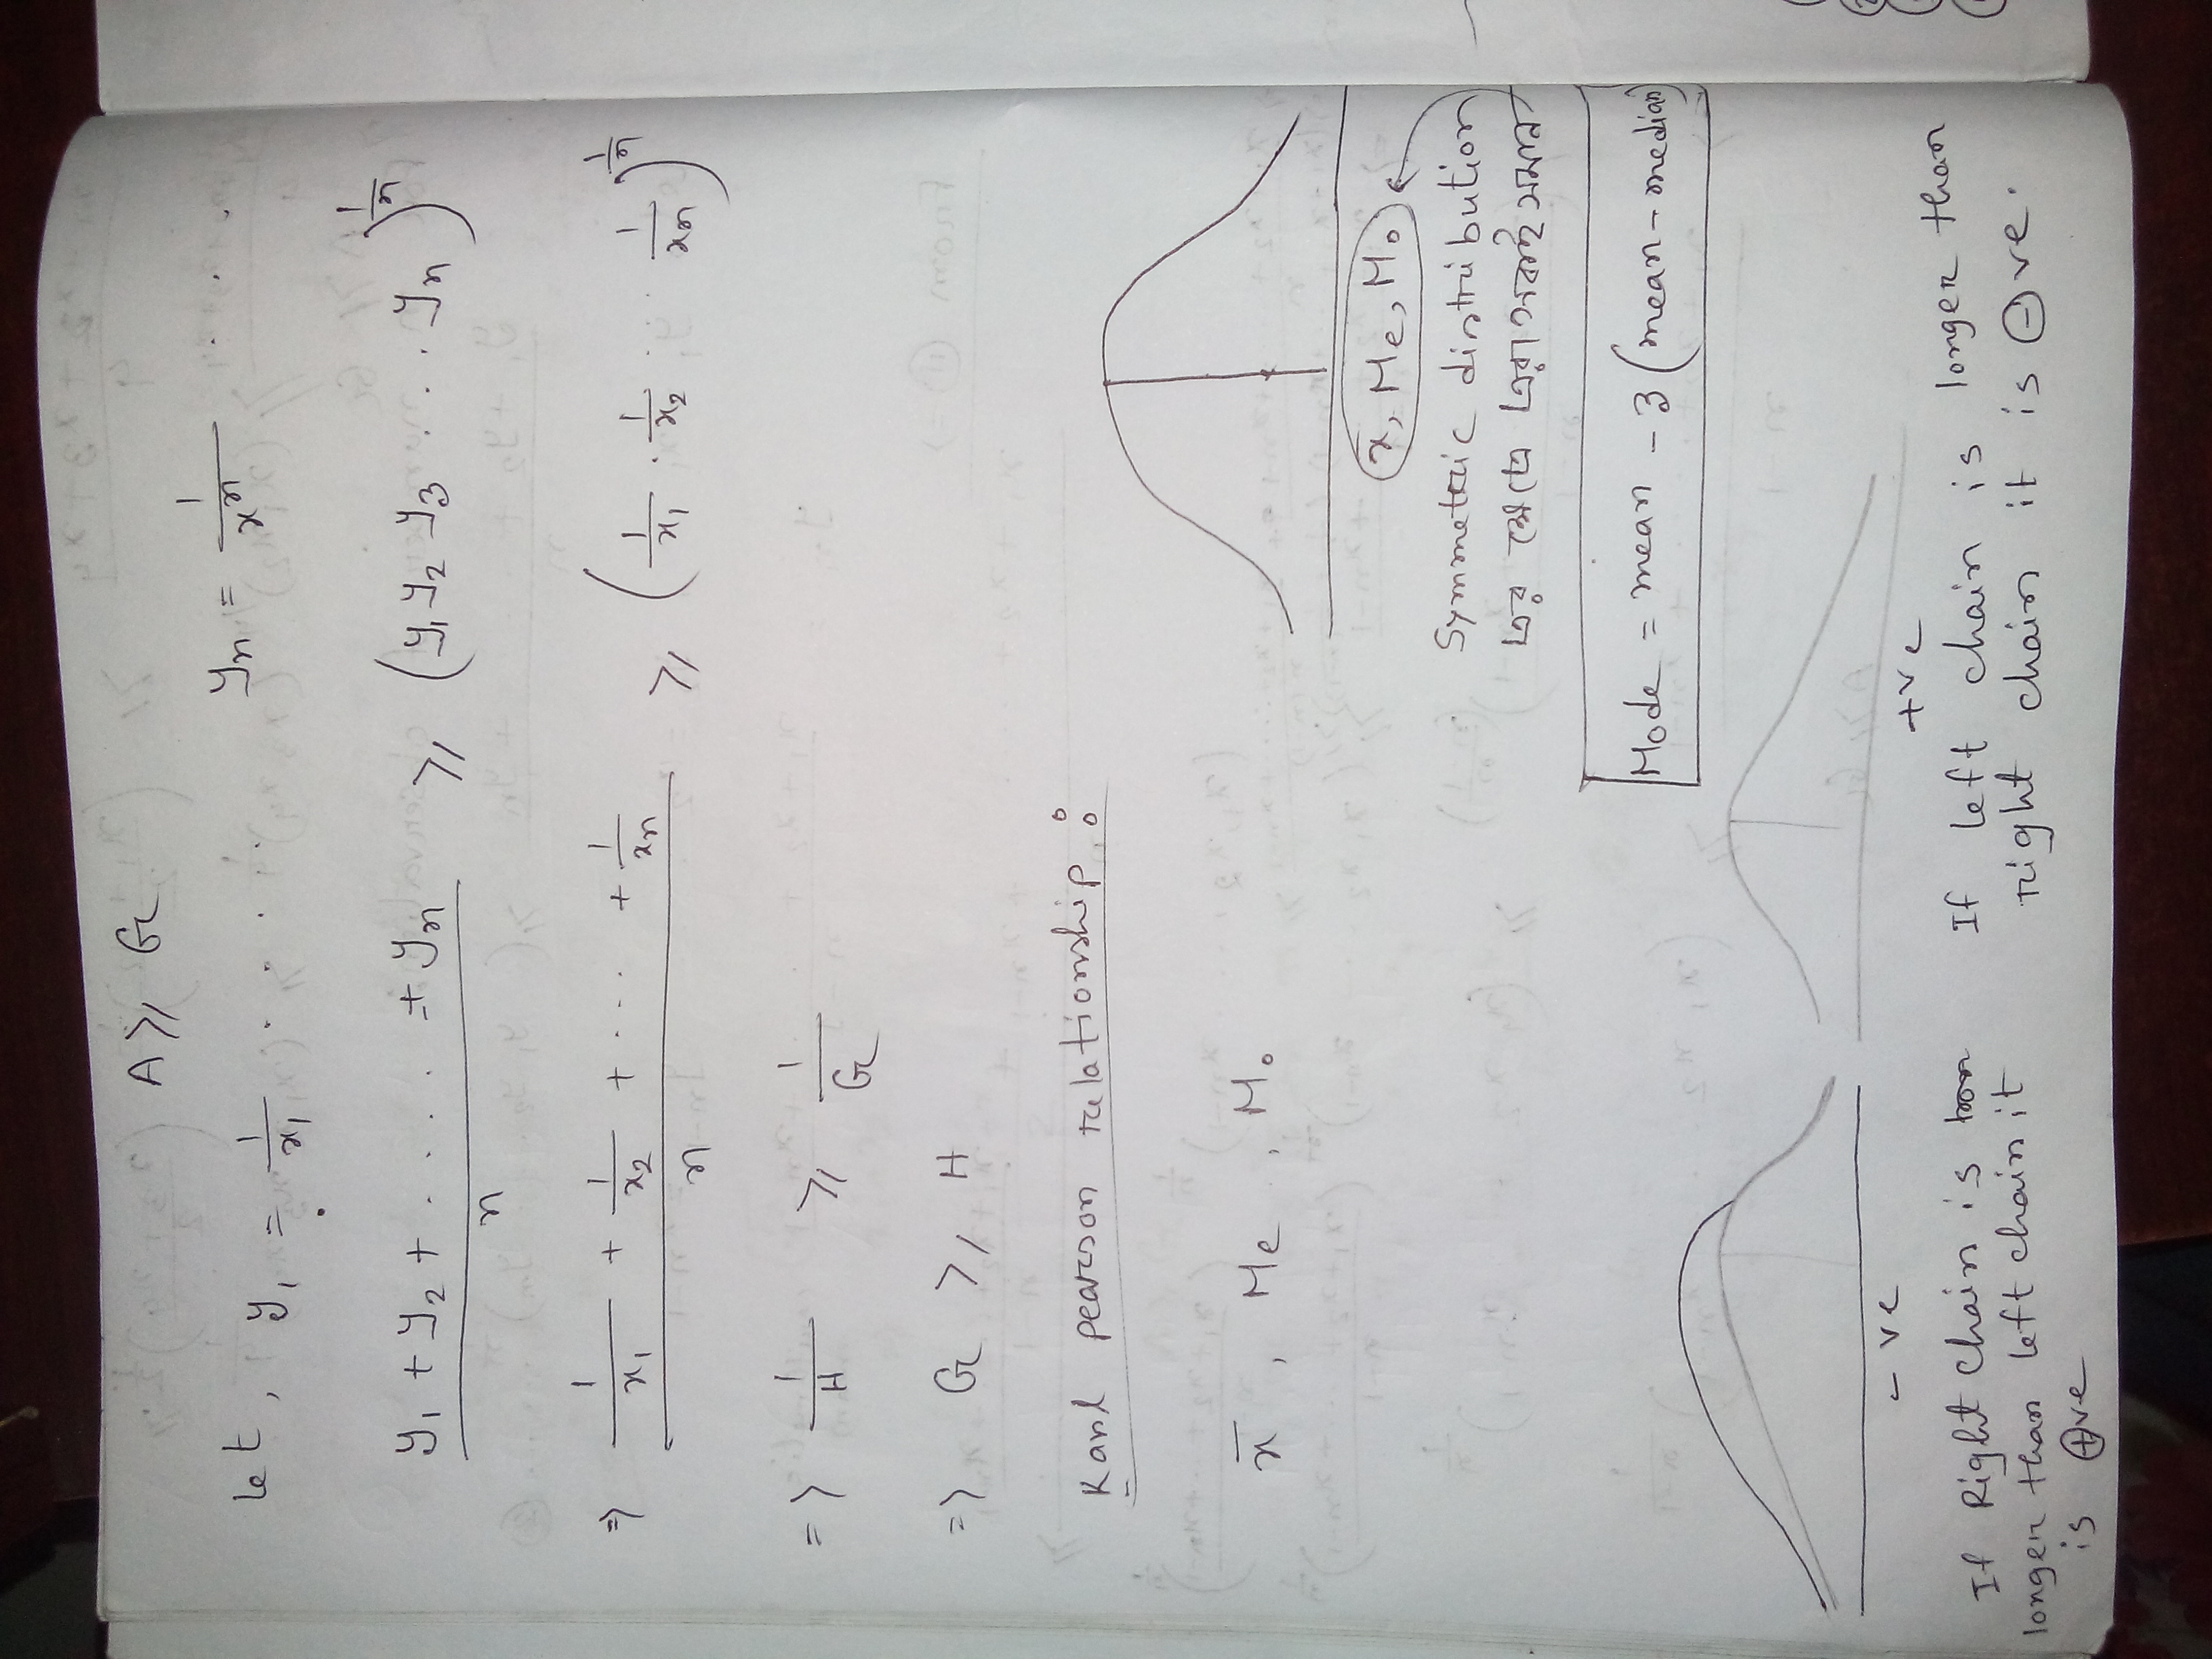 A ≥ G
let, y₁ = 1/x₁ yn = 1/xn
(y₁ + y₂ + .... + yn)/n ≥ (y₁ y₂ y₃ .... yn)^(1/n)
⇒ (1/x₁ + 1/x₂ + ... + 1/xn)/n ≥ (1/x₁ . 1/x₂ ... 1/xn)^(1/n)
⇒ 1/H ≥ 1/G
⇒ G ≥ H
Karl pearson relationship :
x̄, Me, Mo
x̄, Me, Mo
Symmetric distribution
Mode = mean - 3 (mean - median)
- ve
+ve
If Right chain is
longer than left chain it
is ⊕ve
If left chain is longer than
right chain it is ⊖ve.